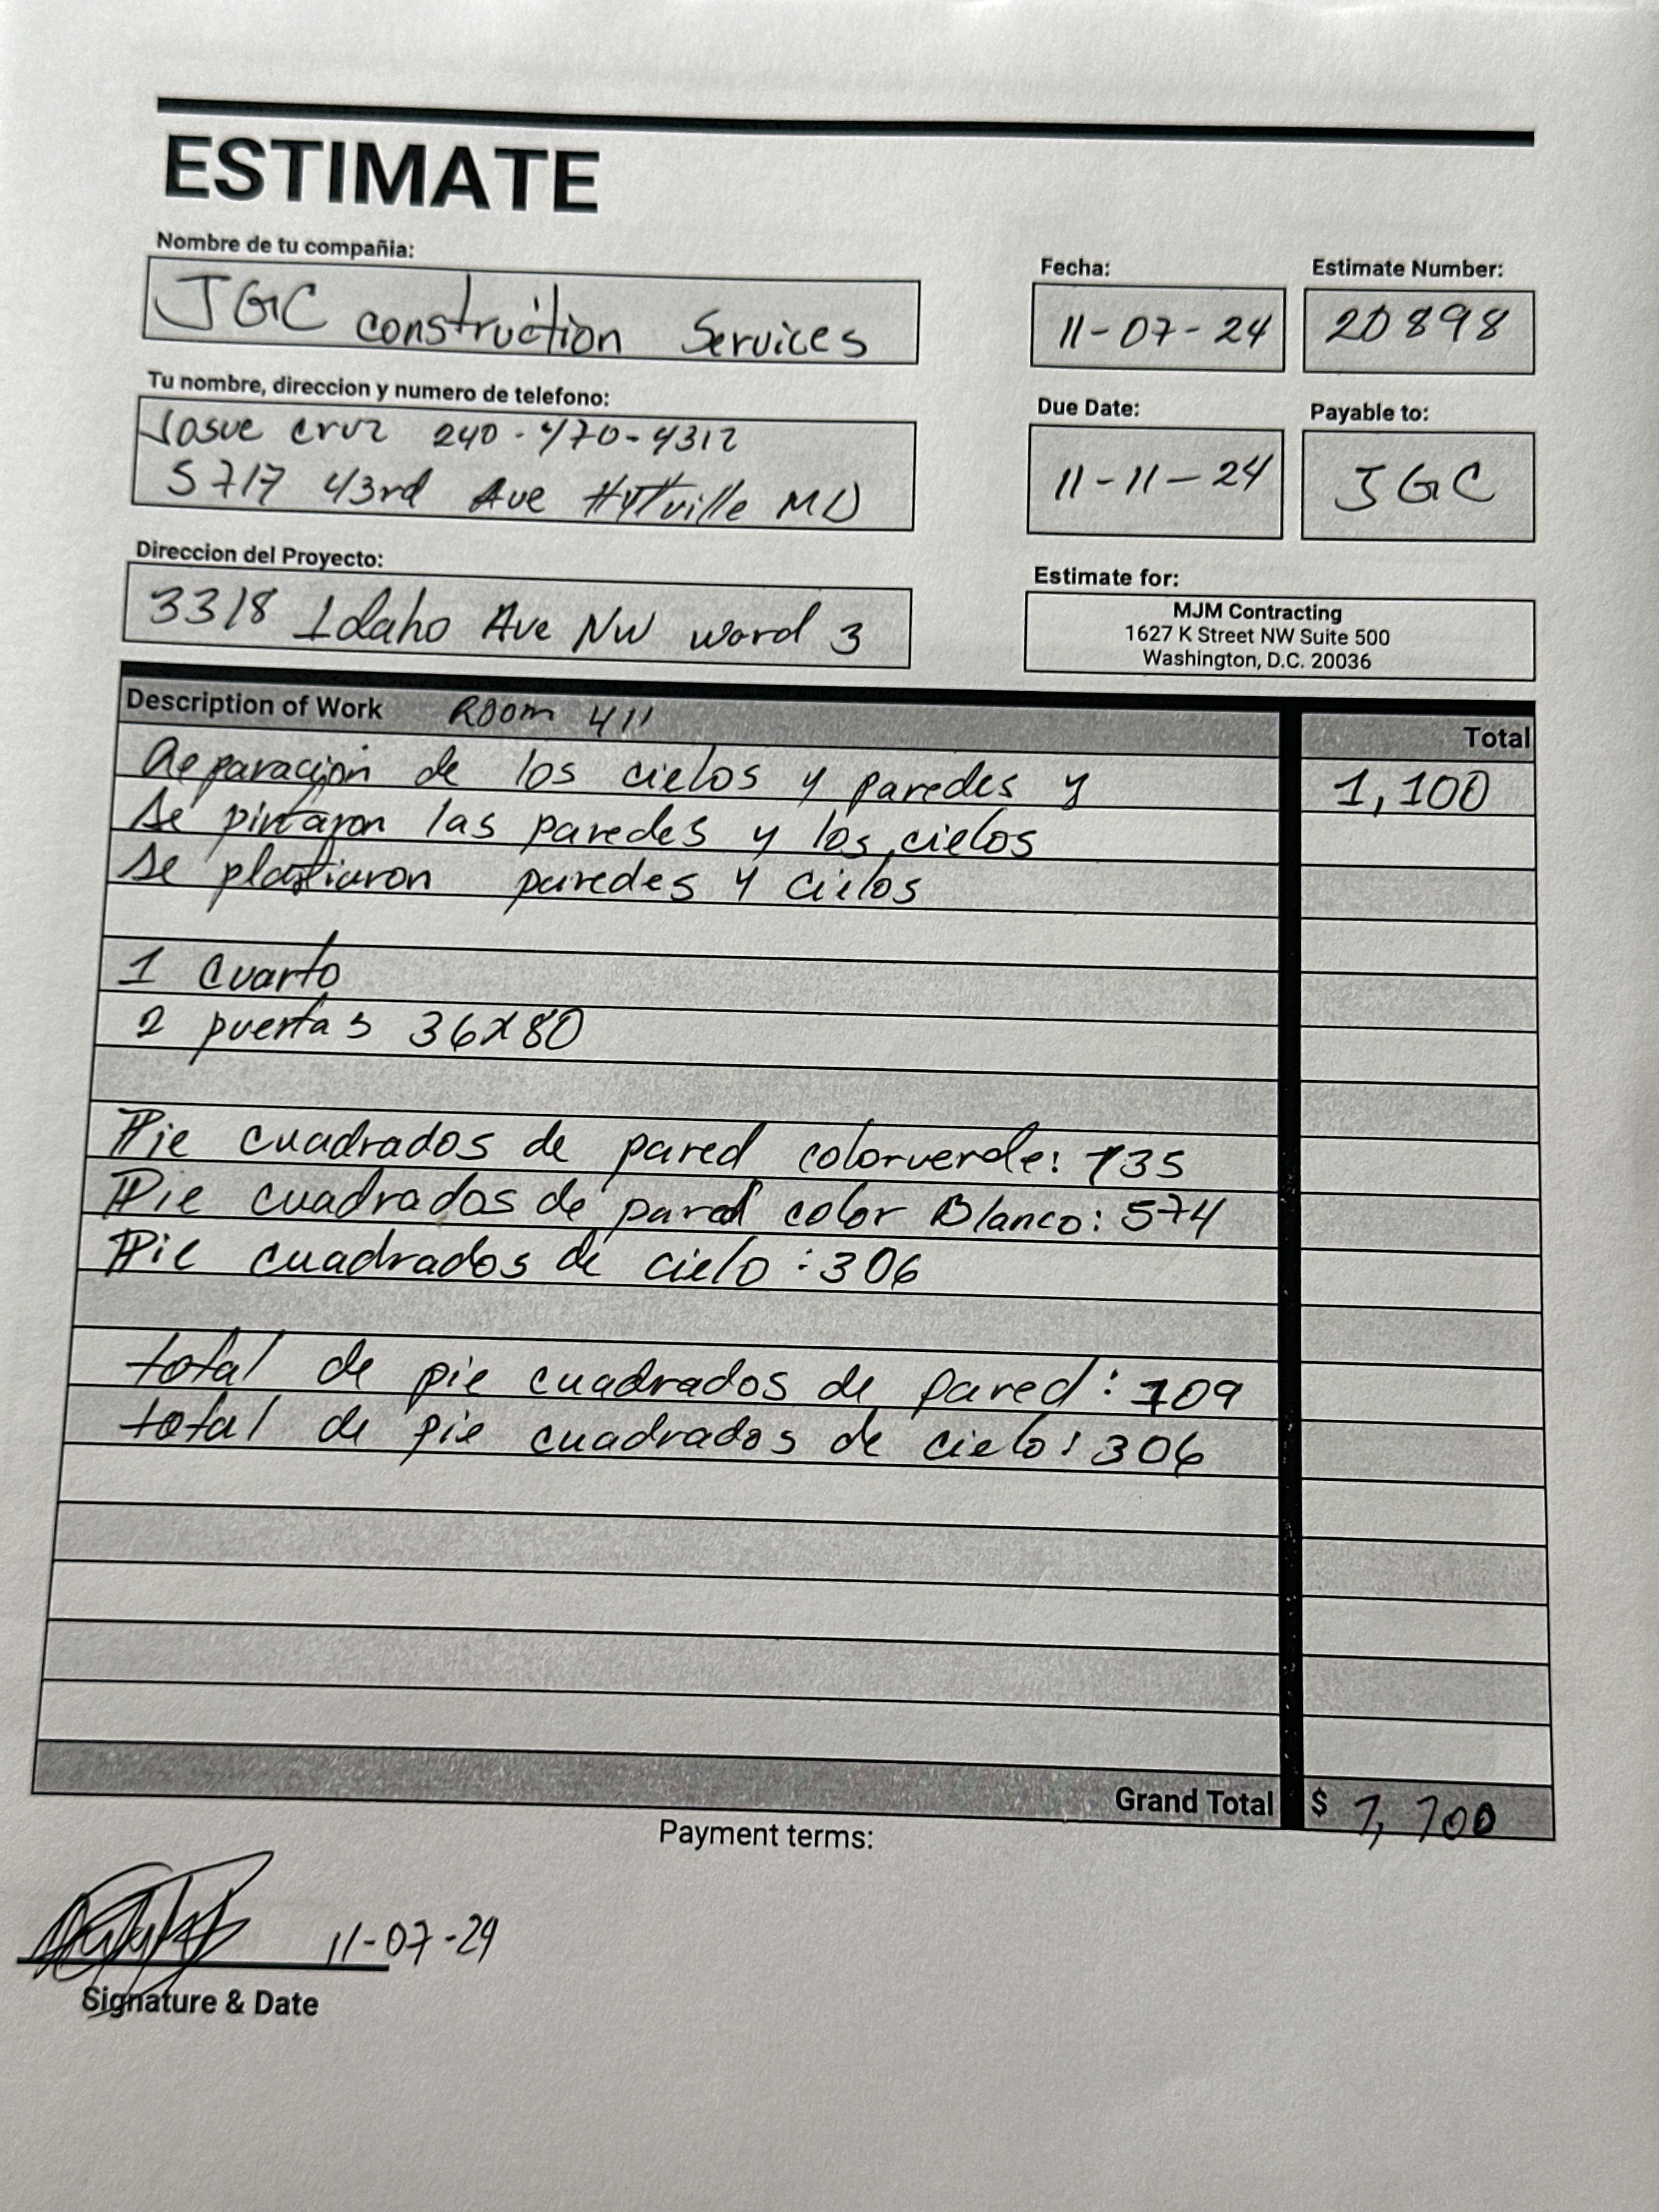 ESTIMATE
Nombre de tu compañia:
JGC construction Services
Fecha:
11-07-24
Estimate Number:
20898
Tu nombre, direccion y numero de telefono:
Josue cruz 240-470-4312
5717 43rd Ave Hyttville MD
Due Date:
11-11-24
Payable to:
JGC
Direccion del Proyecto:
3318 Idaho Ave NW word 3
Estimate for:
MJM Contracting
1627 K Street NW Suite 500
Washington, D.C. 20036
Description of Work Room 411
Total
Reparacion de los cielos y paredes y 1,100
se pintaron las paredes y los cielos
se plastiaron paredes y cielos
1 cuarto
2 puertas 36x80
Pie cuadrados de pared color verde: 135
Pie cuadrados de pared color Blanco: 574
Pie cuadrados de cielo: 306
total de pie cuadrados de pared: 709
total de pie cuadrados de cielo: 306
Grand Total $ 1,100
Payment terms:
11-07-24
Signature & Date